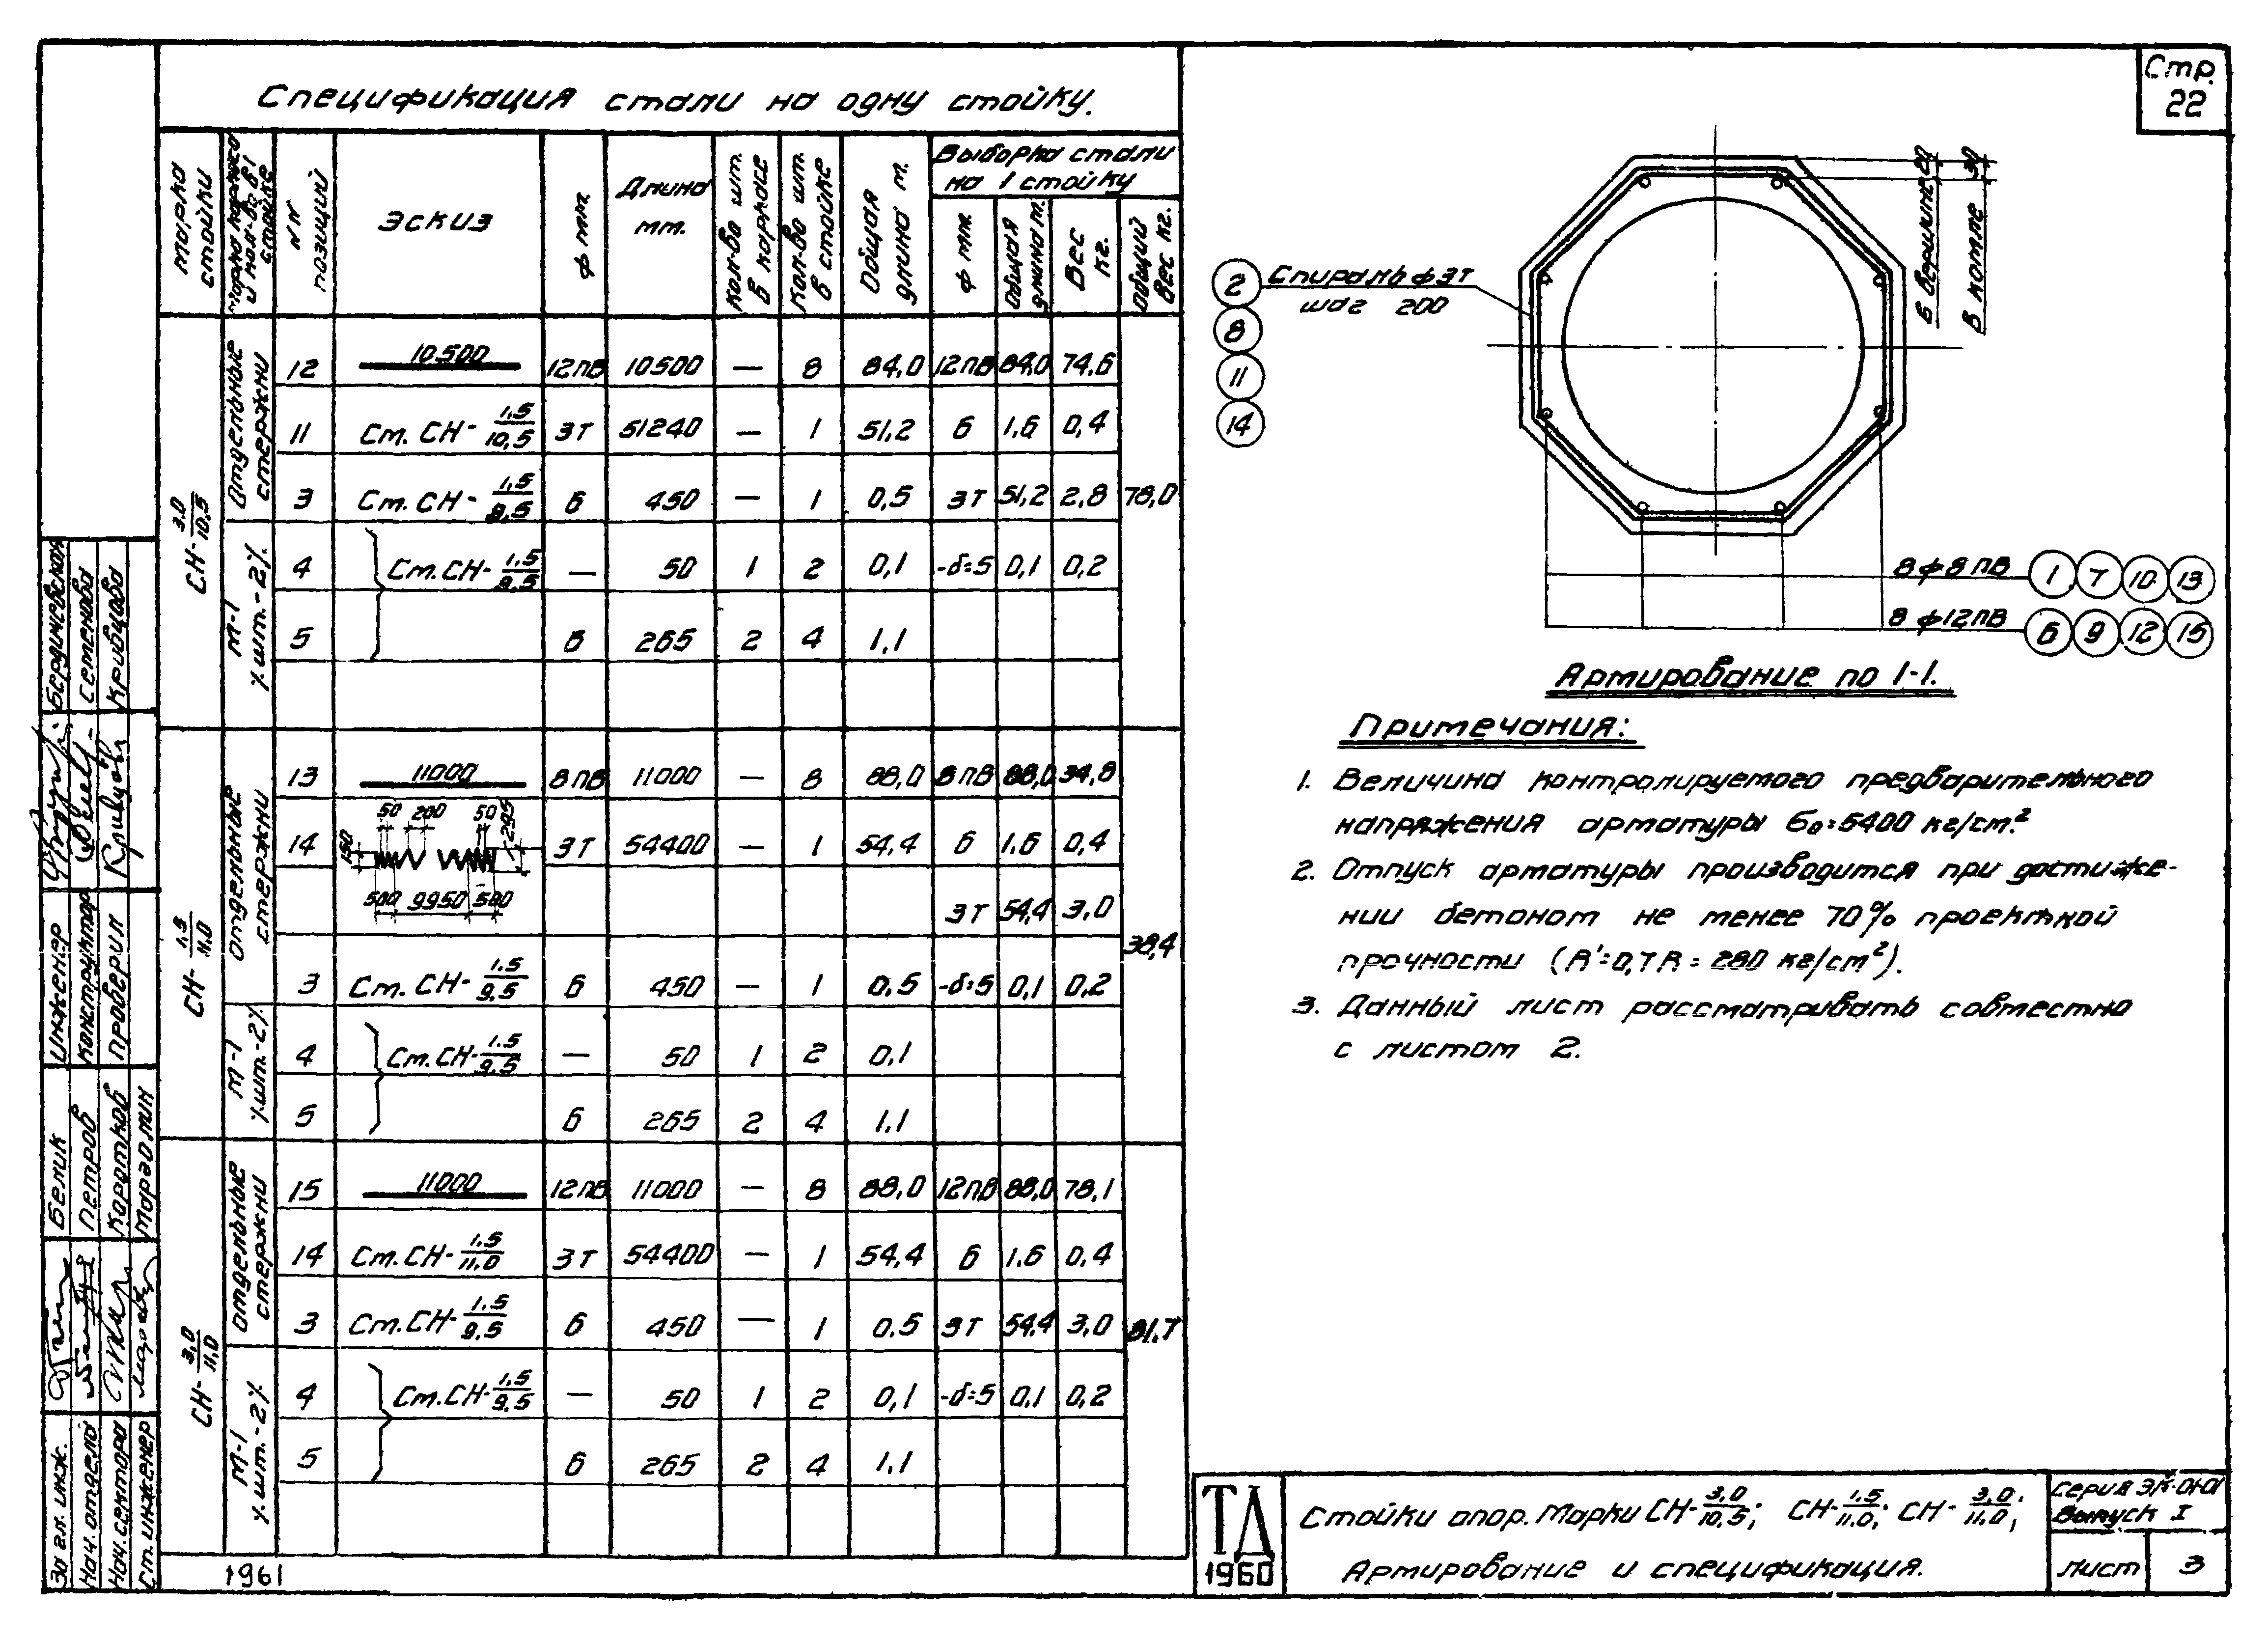 Стр.
22
Спецификация стали на одну стойку.
Марка стойки
Марка каркаса и кол-во в 1 стойке
NN позиций
Эскиз
ф мм.
Длина мм.
Кол-во шт. в каркасе
Кол-во шт. в стойке
Общая длина м.
Выборка стали на 1 стойку
ф мм.
Общая длина м.
Вес кг.
Общий вес кг.
СН-3.0/10,5
Отдельные стержни
12 10500 12ПВ 10500 — 8 84,0 12ПВ 84,0 74,6
11 Ст. СН-1.5/10,5 3Т 51240 — 1 51,2 6 1.6 0,4
3 Ст. СН-1.5/9,5 6 450 — 1 0,5 3Т 51,2 2,8 78,0
М-1 шт.-2
4 Ст. СН-1.5/9.5 — 50 1 2 0,1 -δ=5 0,1 0,2
5 6 265 2 4 1,1
СН-1.5/11.0
Отдельные стержни
13 11000 8ПВ 11000 — 8 88,0 8ПВ 88,0 34,8
50 200 50
150
14 3Т 54400 — 1 54,4 6 1.6 0,4
500 9950 500
3Т 54,4 3,0
38,4
3 Ст. СН-1.5/9.5 6 450 — 1 0.5 -δ=5 0,1 0,2
М-1 шт.-2
4 Ст. СН-1.5/9.5 — 50 1 2 0,1
5 6 265 2 4 1.1
СН-3,0/11,0
Отдельные стержни
15 11000 12ПВ 11000 — 8 88,0 12ПВ 88,0 78,1
14 Ст. СН-1.5/11.0 3Т 54400 — 1 54,4 6 1.6 0,4
3 Ст. СН-1.5/9.5 6 450 — 1 0.5 3Т 54,4 3,0 81,7
М-1 шт.-2
4 Ст. СН-1.5/9.5 — 50 1 2 0,1 -δ=5 0,1 0,2
5 6 265 2 4 1.1
1961
2 Спираль ф3Т
шаг 200
8
11
14
В вершине 20
В комле 30
8ф8ПВ 1 7 10 13
8 ф12ПВ 6 9 12 15
Армирование по 1-1.
Примечания:
1. Величина контролируемого предварительного
напряжения арматуры бо=5400 кг/см.²
2. Отпуск арматуры производится при достиже-
нии бетоном не менее 70% проектной
прочности (R'=0,7R=280 кг/см²).
3. Данный лист рассматривать совместно
с листом 2.
ТД
1960
Стойки опор. Марки СН-3.0/10,5; СН-1.5/11.0; СН-3,0/11,0;
Армирование и спецификация.
Серия ЭК-01-01
Выпуск I
лист 3
Бердичевская
Семенова
Кривцова
Инженер
Конструктор
Проверил
Белик
Петров
Коротков
Марголин
За гл. инж.
Нач. отдела
Нач. сектора
Ст. инженер